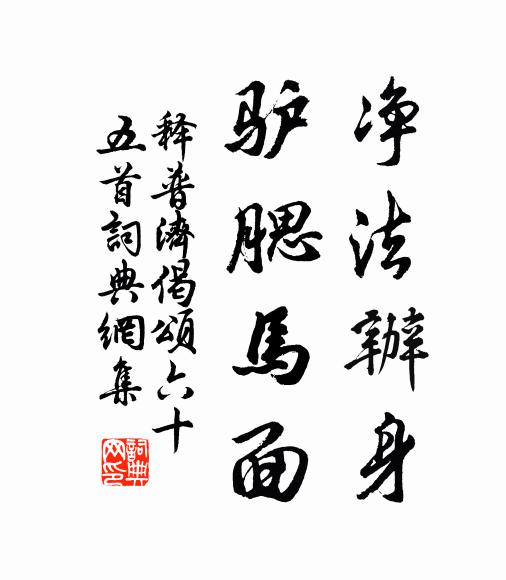 净法辦身
驴腮馬面
释普濟偈頌六十
五首詞典網集
詞典
网印